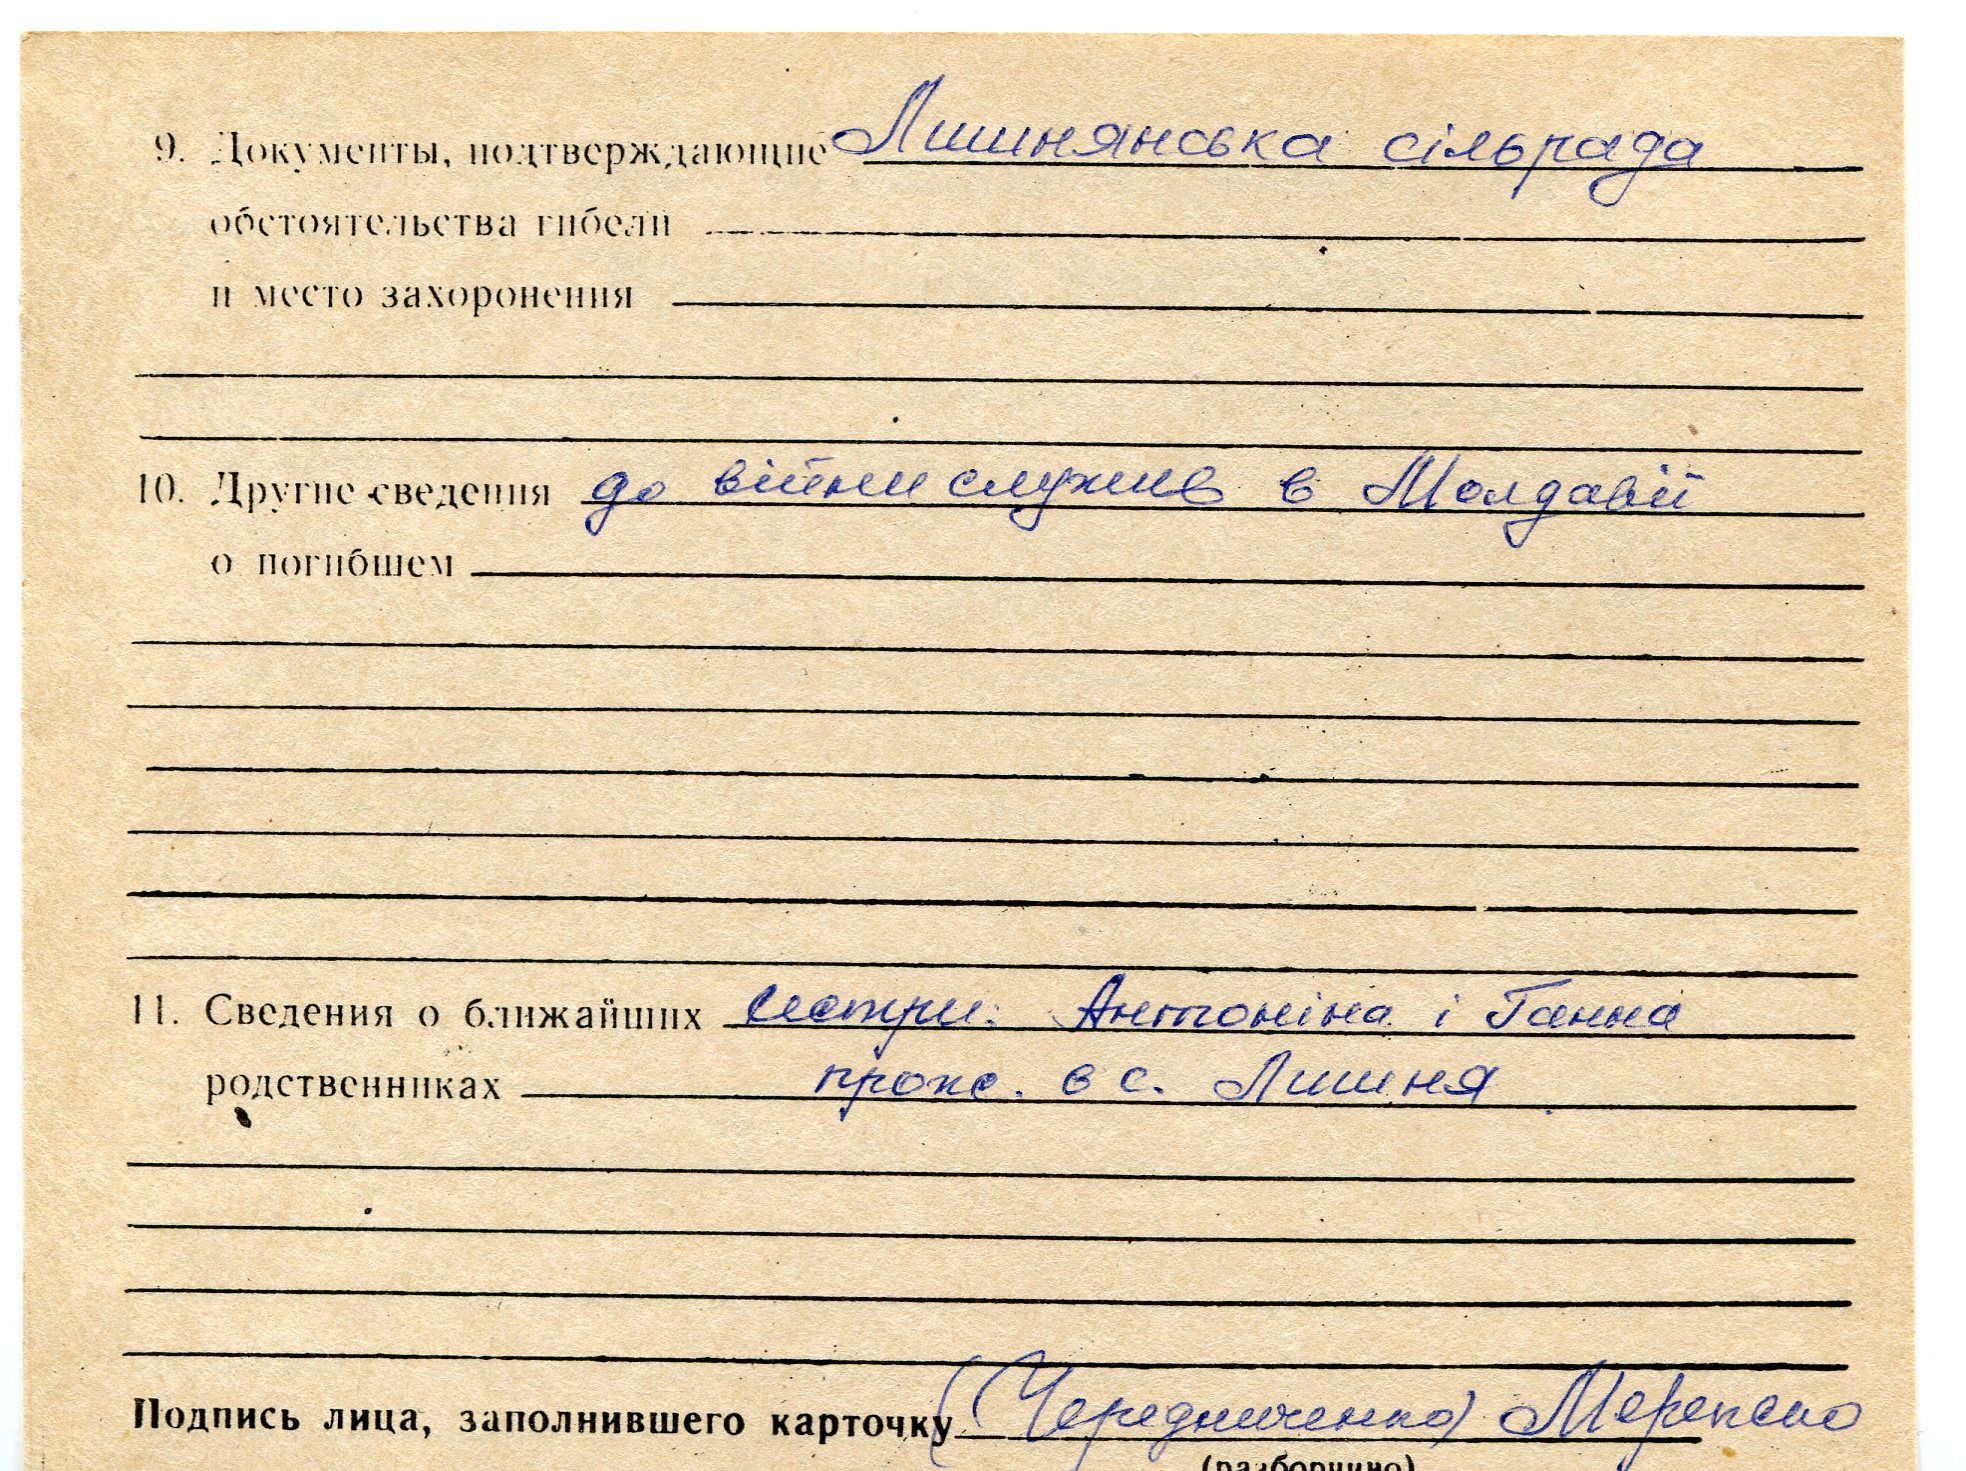 9. Документы, подтверждающие Лишнянська сільрада
обстоятельства гибели
и место захоронения
10. Другие сведения до війни служив в Молдавії
о погибшем
11. Сведения о ближайших сестри: Антоніна і Ганна
родственниках прож. в с. Лишня
Подпись лица, заполнившего карточку (Чередниченко)
(разборчиво)